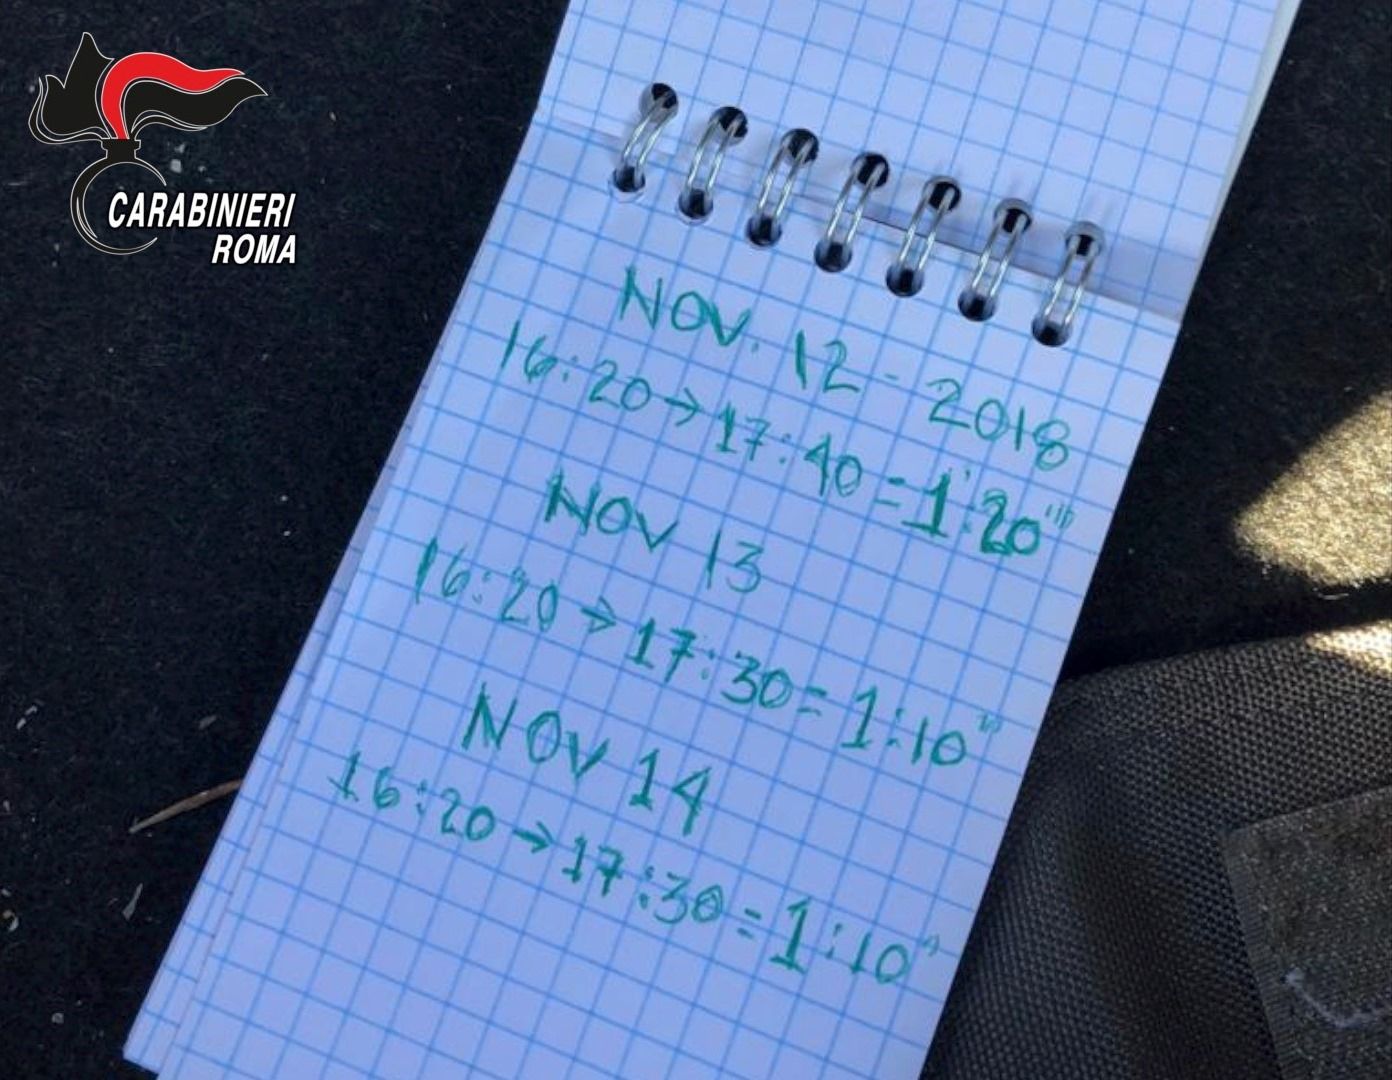 CARABINIERI
ROMA
NOV. 12 - 2018
16:20 → 17:40 = 1':20''''
NOV 13
16:20 → 17:30 = 1:10'''
NOV 14
16:20 → 17:30 = 1:10''